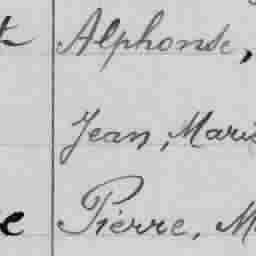 Alphonse,
Jean, Marie
Pierre, M